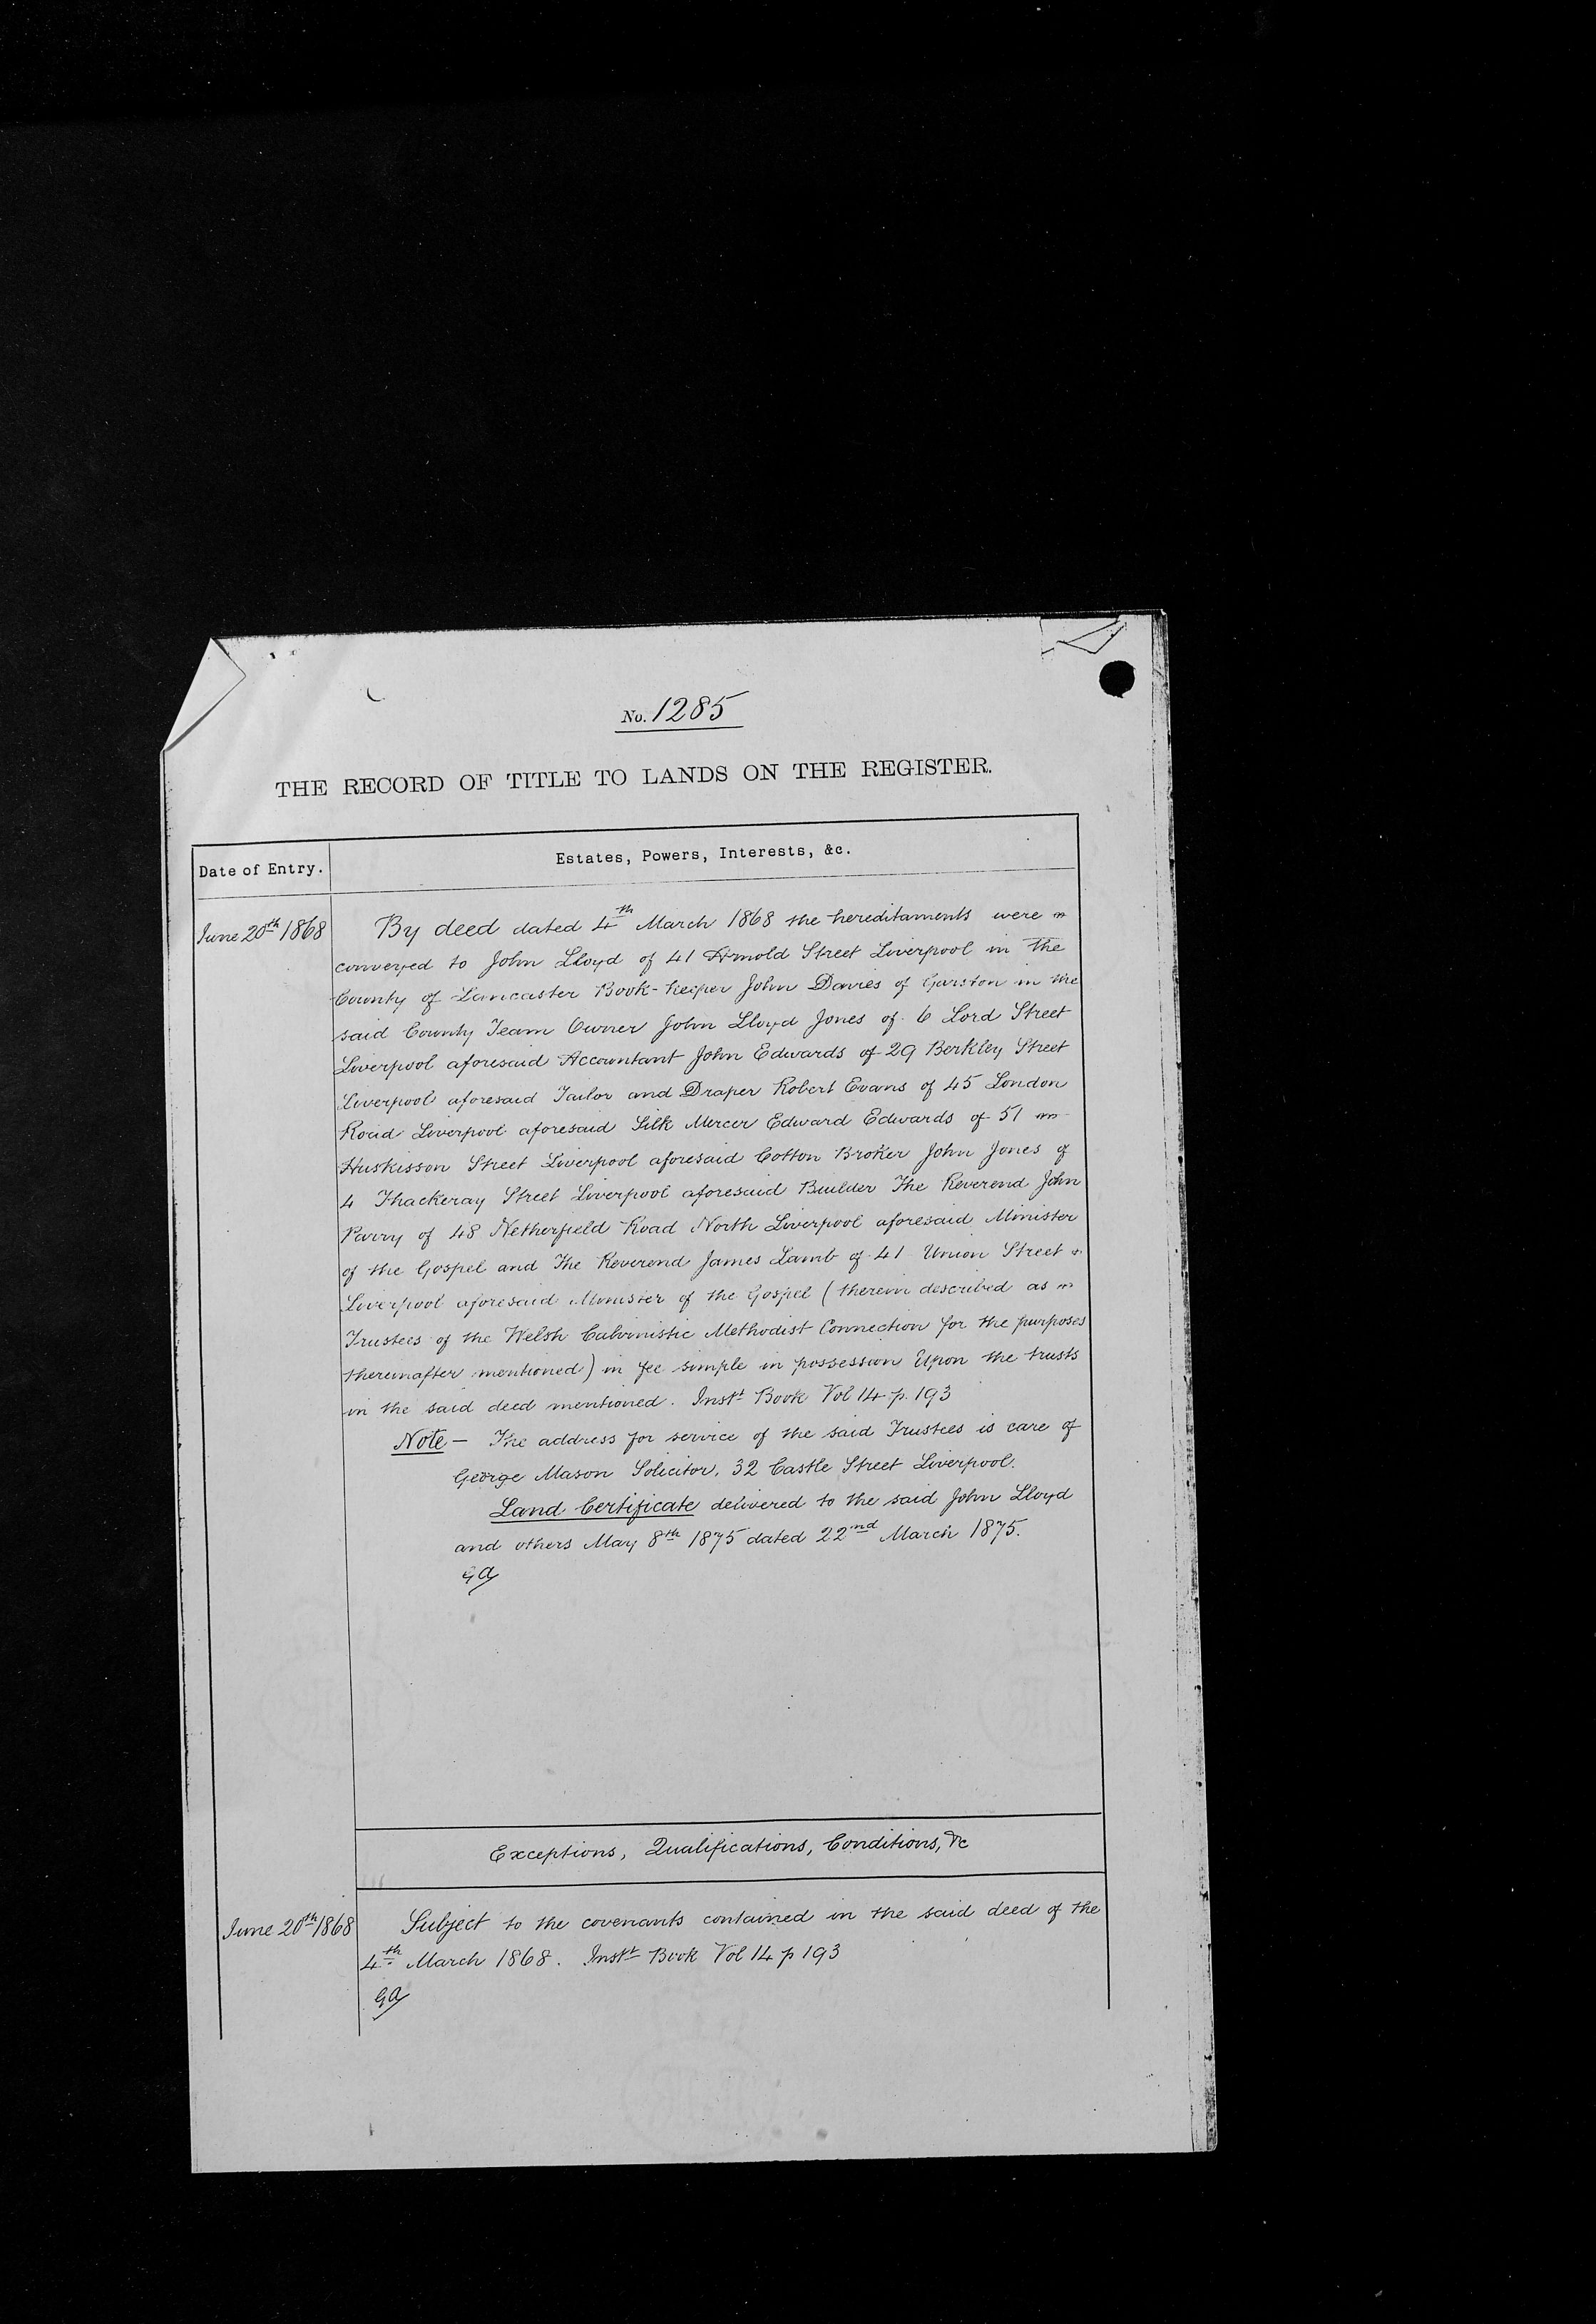 No. 1285
THE RECORD OF TITLE TO LANDS ON THE REGISTER.
Date of Entry.
Estates, Powers, Interests, &c.
June 20th 1868
By deed dated 4th March 1868 the hereditaments were
conveyed to John Lloyd of 41 Arnold Street Liverpool in the
County of Lancaster Book-keeper John Davies of Garston in the
said County Team Owner John Lloyd Jones of 6 Lord Street
Liverpool aforesaid Accountant John Edwards of 29 Berkley Street
Liverpool aforesaid Tailor and Draper Robert Evans of 45 London
Road Liverpool aforesaid Silk Mercer Edward Edwards of 51
Huskisson Street Liverpool aforesaid Cotton Broker John Jones of
4 Thackeray Street Liverpool aforesaid Builder The Reverend John
Parry of 48 Netherfield Road North Liverpool aforesaid Minister
of the Gospel and The Reverend James Lamb of 41 Union Street
Liverpool aforesaid Minister of the Gospel (therein described as
Trustees of the Welsh Calvinistic Methodist Connection for the purposes
thereinafter mentioned) in fee simple in possession Upon the trusts
in the said deed mentioned. Instt Book Vol 14 p. 193
Note – The address for service of the said Trustees is care of
George Mason Solicitor, 32 Castle Street Liverpool.
Land Certificate delivered to the said John Lloyd
and others May 8th 1875 dated 22nd March 1875.
GA
Exceptions, Qualifications, Conditions, &c
June 20th 1868
Subject to the covenants contained in the said deed of the
4th March 1868. Instt Book Vol 14 p 193
GA